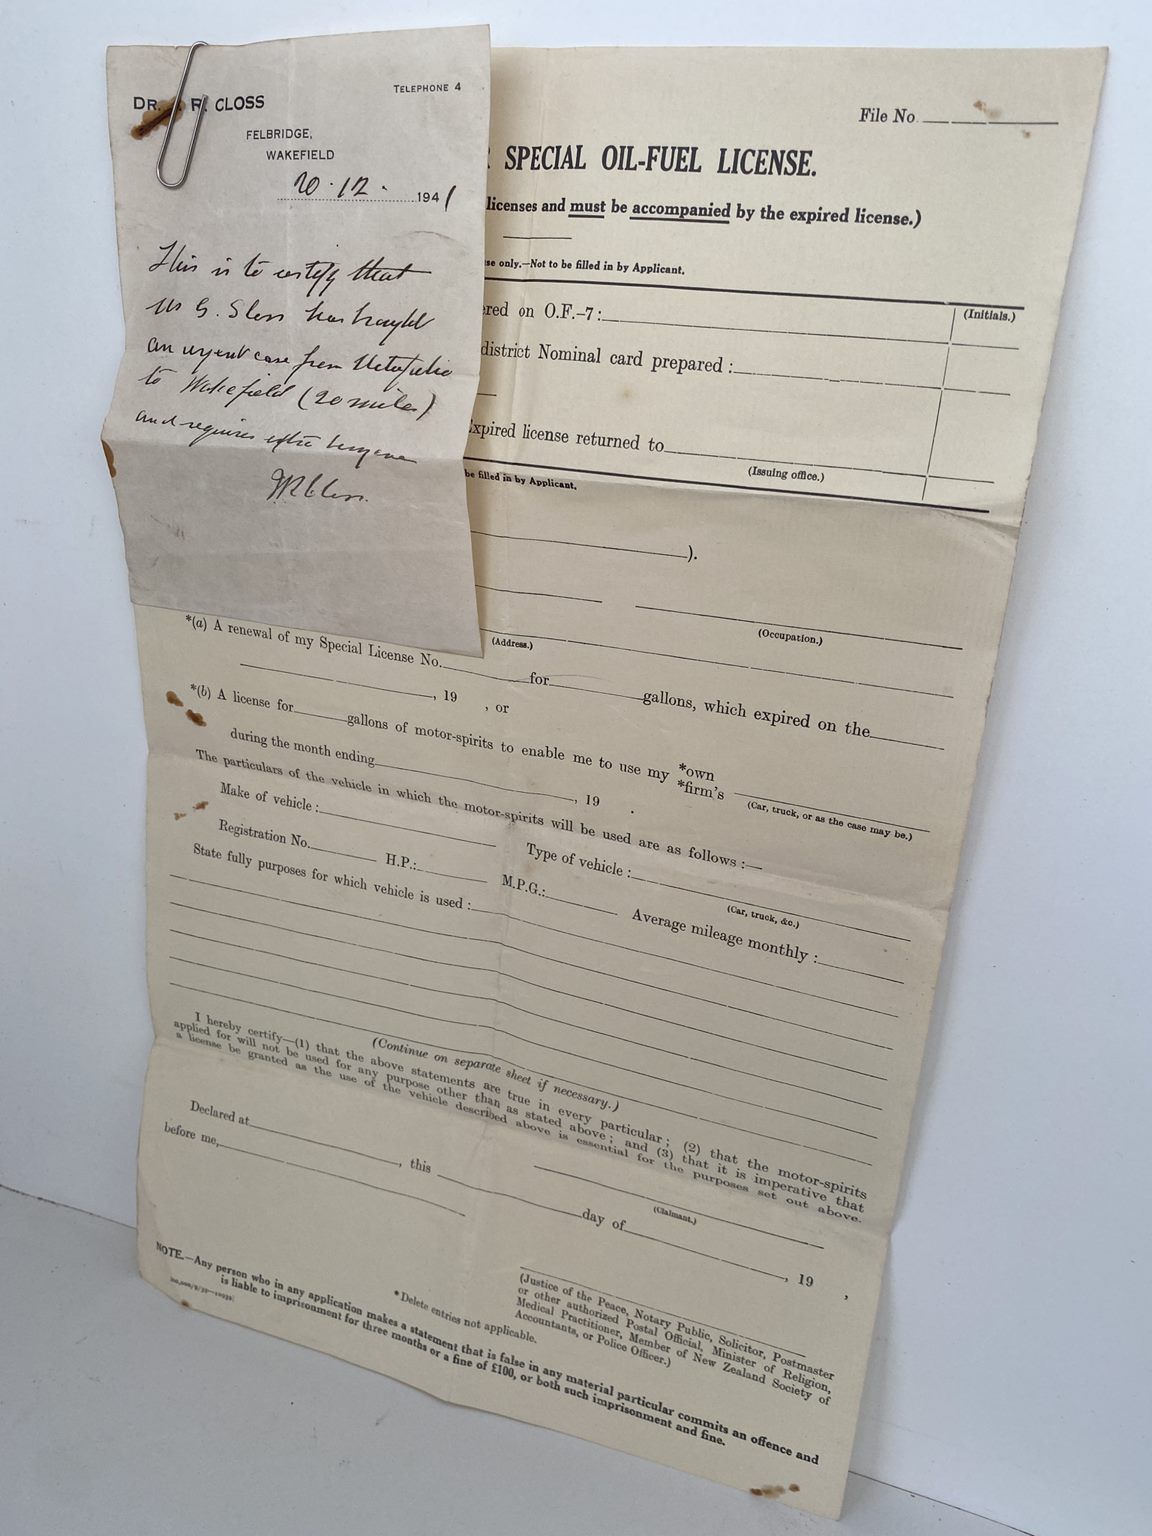 DR. R. CLOSS
TELEPHONE 4
FELBRIDGE,
WAKEFIELD
20.12. 1941
This is to certify that
Mr G. Sloss has brought
an urgent case from
to Wakefield (20 miles)
and requires extra
File No
SPECIAL OIL-FUEL LICENSE.
licenses and must be accompanied by the expired license.)
se only.—Not to be filled in by Applicant.
ered on O.F.-7:
(Initials.)
district Nominal card prepared :
Expired license returned to
(Issuing office.)
be filled in by Applicant.
).
(Occupation.)
(Address.)
*(a) A renewal of my Special License No. for gallons, which expired on the
, 19 , or
*(b) A license for gallons of motor-spirits to enable me to use my *own
*firm's
(Car, truck, or as the case may be.)
during the month ending , 19 .
The particulars of the vehicle in which the motor-spirits will be used are as follows :—
Make of vehicle : Type of vehicle :
(Car, truck, &c.)
Registration No. H.P.: M.P.G.: Average mileage monthly :
State fully purposes for which vehicle is used :
(Continue on separate sheet if necessary.)
I hereby certify—(1) that the above statements are true in every particular; (2) that the motor-spirits
applied for will not be used for any purpose other than as stated above; and (3) that it is imperative that
a license be granted as the use of the vehicle described above is essential for the purposes set out above.
(Claimant.)
Declared at , this day of , 19 ,
before me,
(Justice of the Peace, Notary Public, Solicitor, Postmaster
or other authorized Postal Official, Minister of Religion,
Medical Practitioner, Member of New Zealand Society of
Accountants, or Police Officer.)
* Delete entries not applicable.
NOTE.—Any person who in any application makes a statement that is false in any material particular commits an offence and
is liable to imprisonment for three months or a fine of £100, or both such imprisonment and fine.